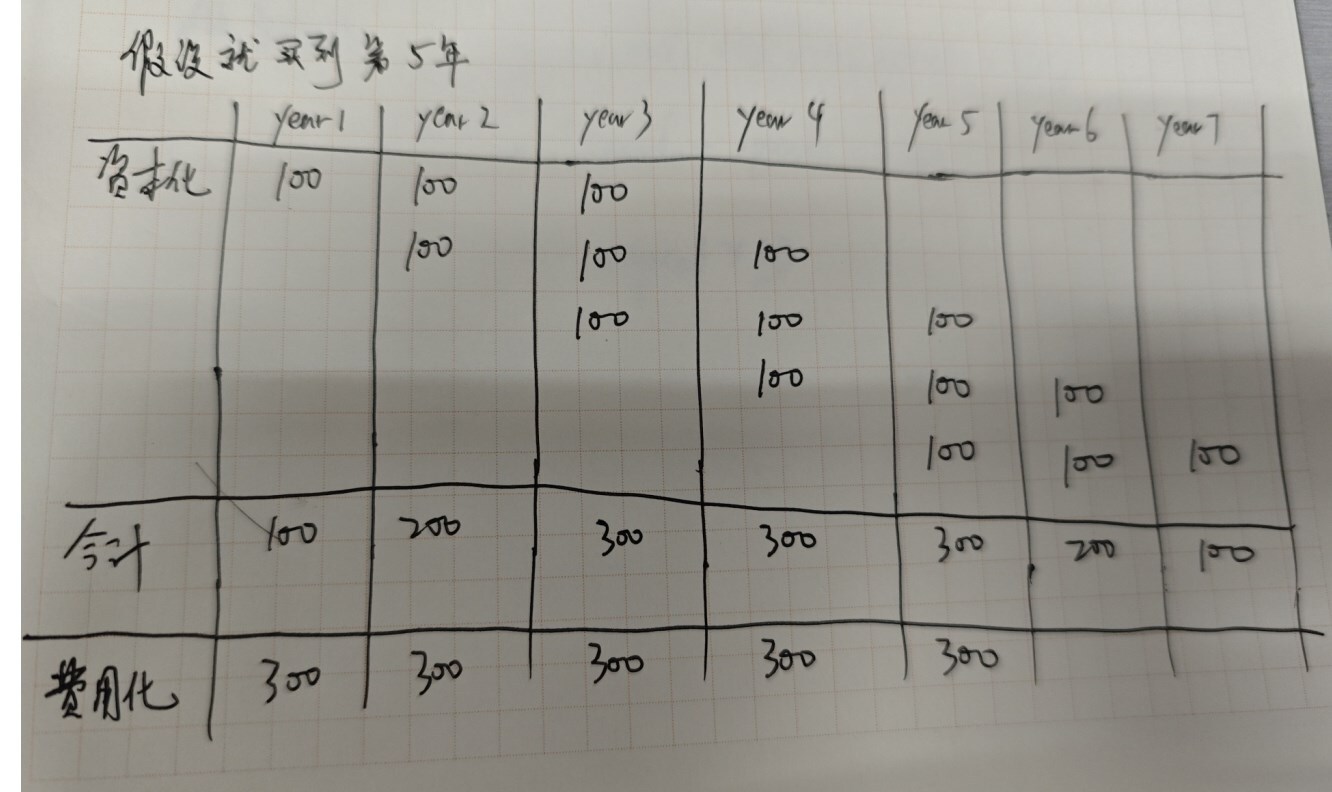 假设就买到第5年
year 1 year 2 year 3 year 4 year 5 year 6 year 7
资本化 100 100 100
100 100 100
100 100 100
100 100 100
100 100 100
合计 100 200 300 300 300 200 100
费用化 300 300 300 300 300